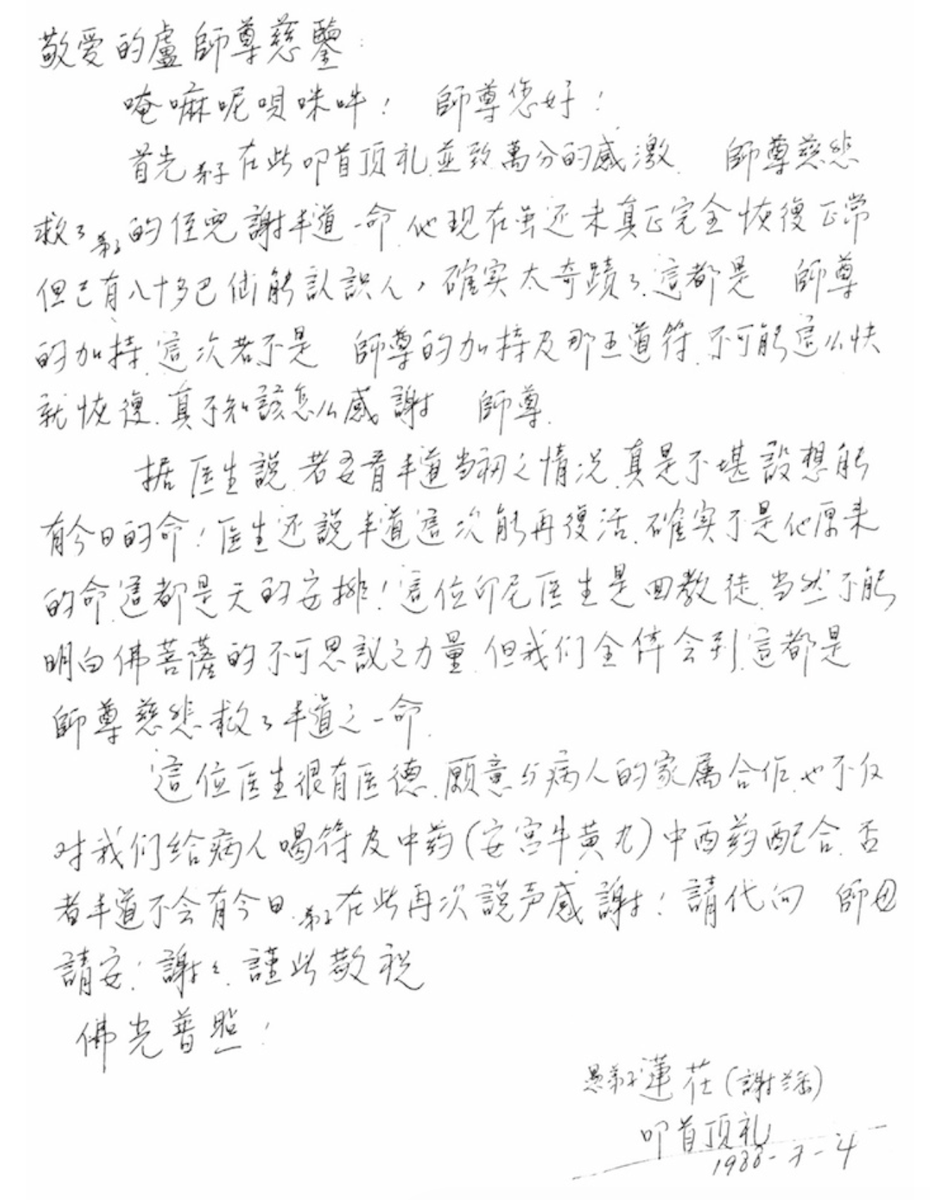 敬爱的盧師尊慈鑒:
唵嘛呢唄咪吽! 師尊您好!
首先弟子在此叩首顶礼並致萬分的感激 師尊慈悲
救了弟子的侄兒謝丰道一命.他现在虽还未真正完全恢復正常
但已有八十多巴仙能认識人,確实太奇蹟了.這都是 師尊
的加持.這次若不是 師尊的加持及那五道符.不可能這么快
就恢復.真不知該怎么感謝 師尊.
据医生説.若看丰道当初之情况.真是不堪設想能
有今日的命!医生还説丰道這次能再復活.確实不是他原来
的命.這都是天的安排!這位印尼医生是回教徒.当然不能
明白佛菩薩的不可思议之力量.但我们全体会到.這都是
師尊慈悲救了丰道之一命.
這位医生很有医德.願意与病人的家属合作.也不反
对我们给病人喝符及中药(安宫牛黄丸)中西药配合.否
者丰道不会有今日.弟子在此再次説声感謝!請代向 師母
請安!謝々.謹此敬祝
佛光普照!
愚弟子蓮花(謝)
叩首顶礼
1988-7-4